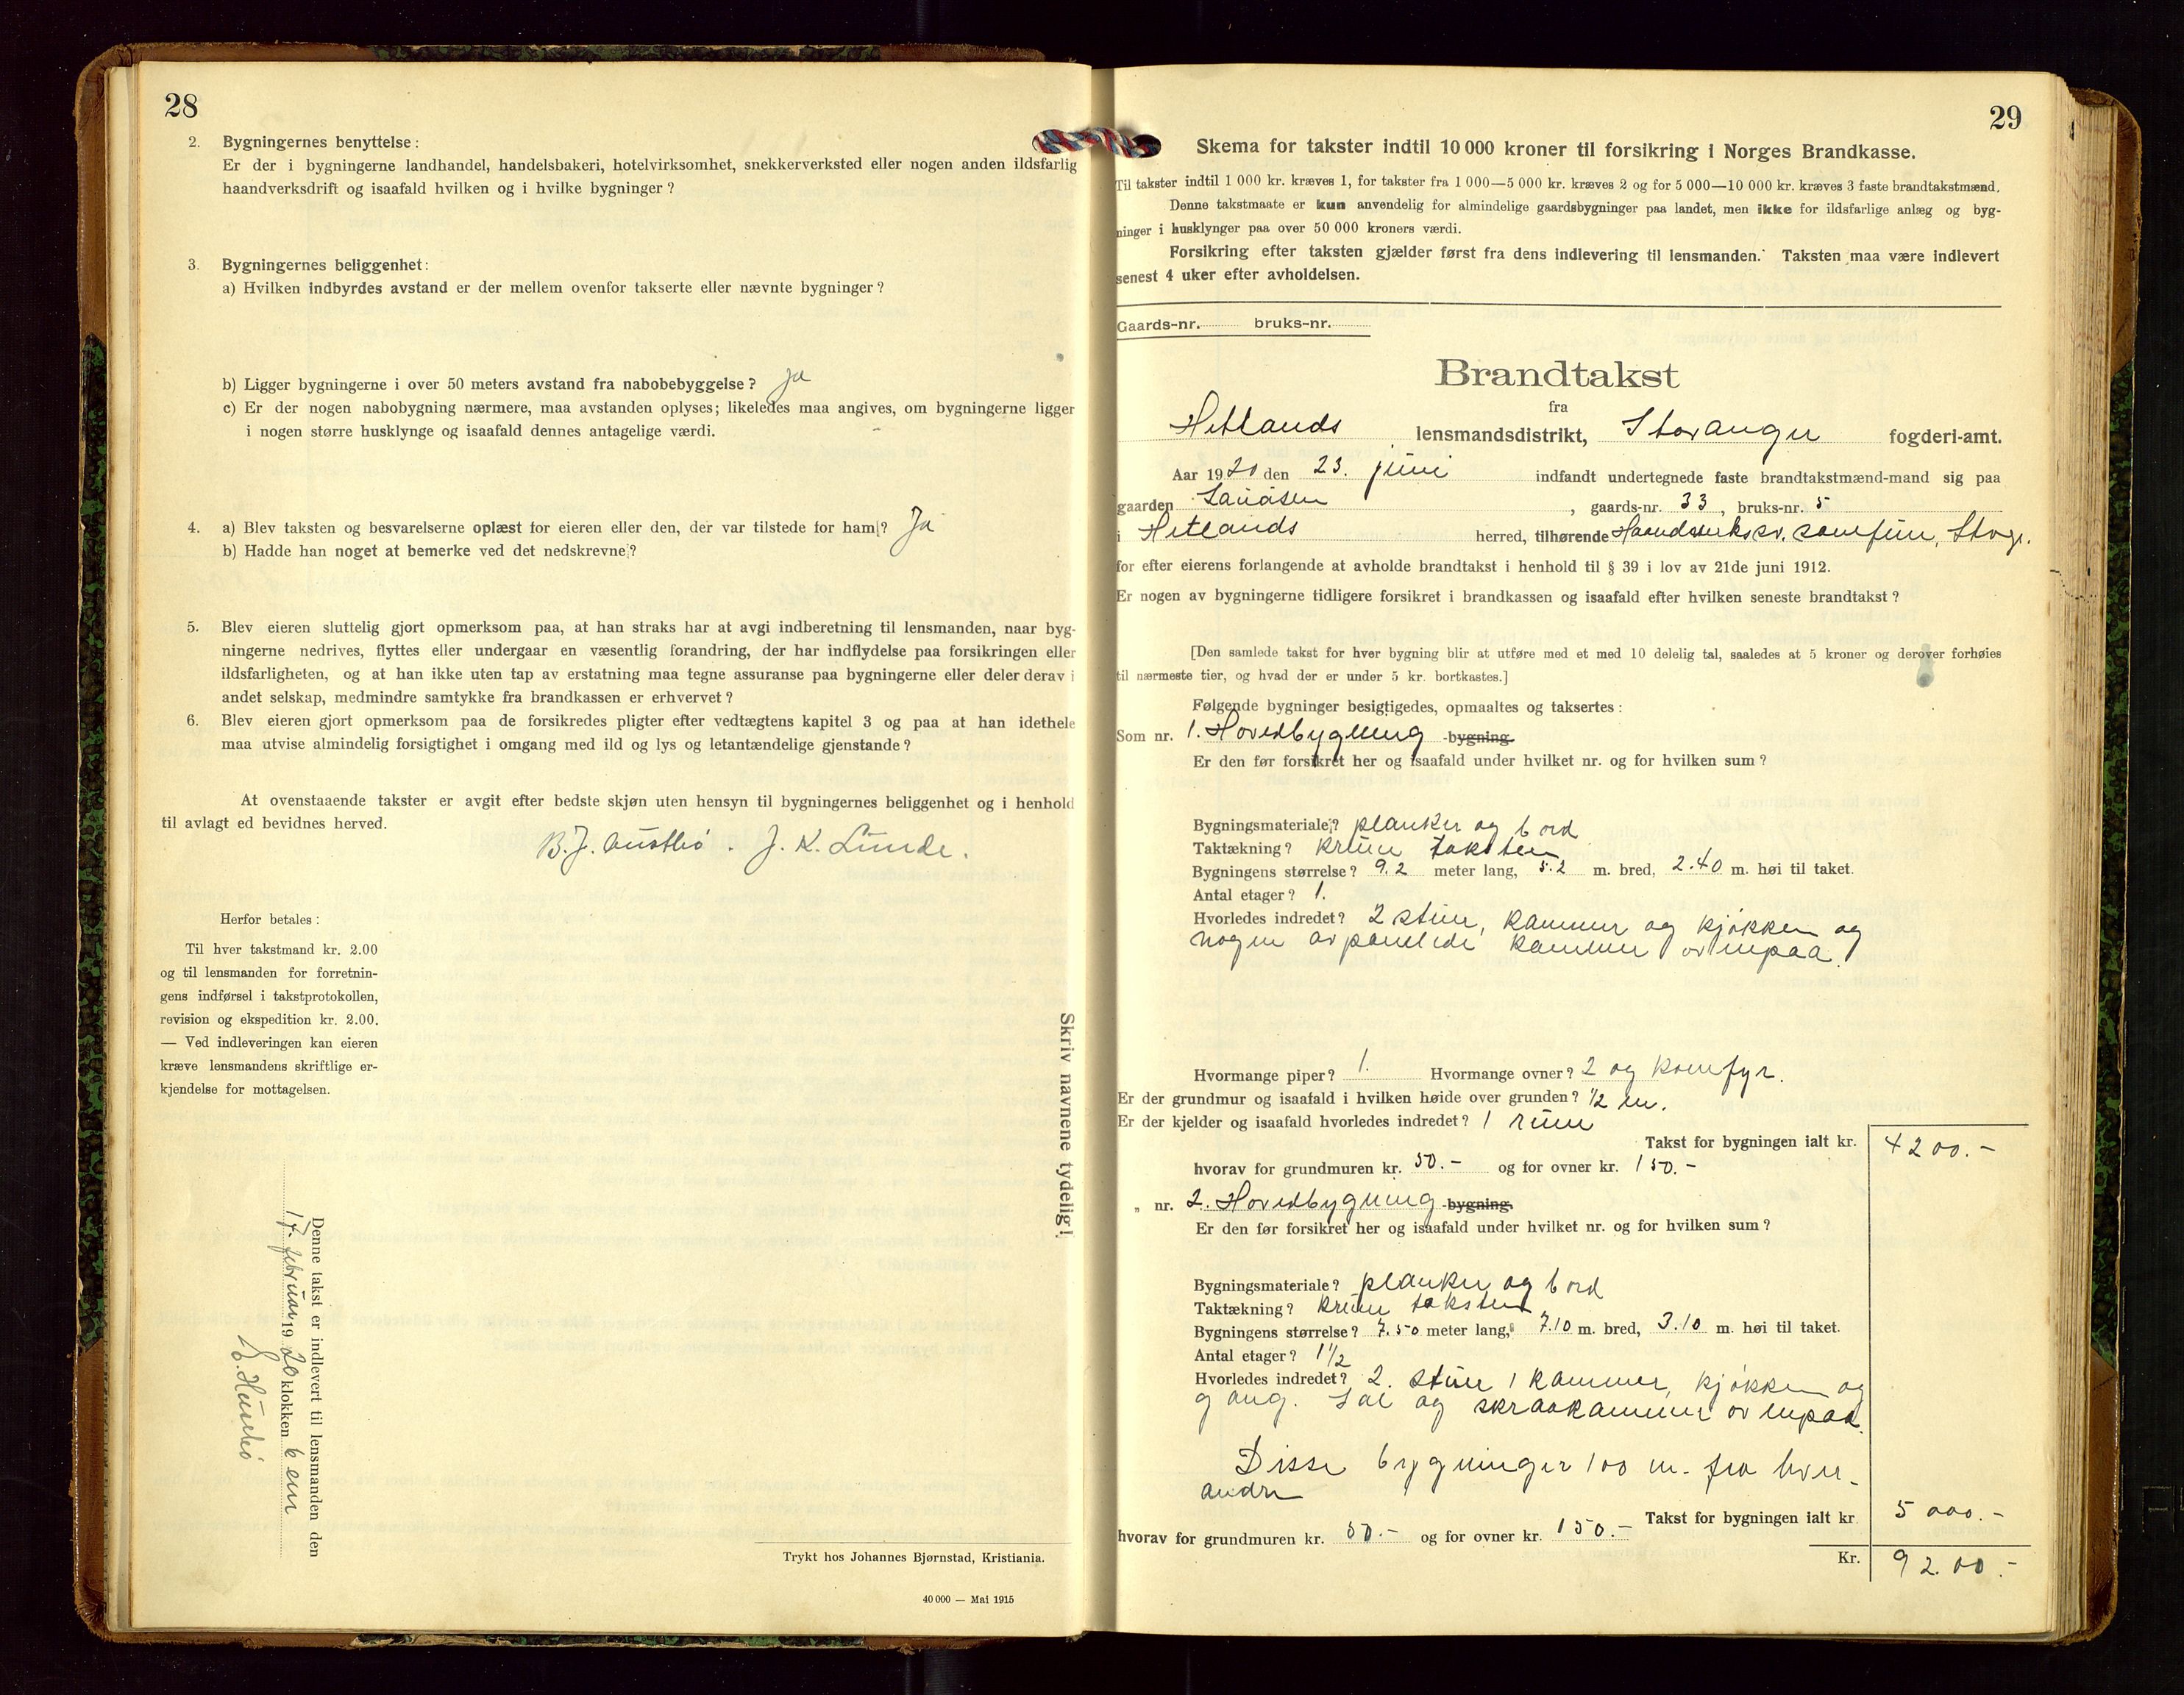 28
2. Bygningernes benyttelse:
Er der i bygningerne landhandel, handelsbakeri, hotelvirksomhet, snekkerverksted eller nogen anden ildsfarlig
haandverksdrift og isaafald hvilken og i hvilke bygninger?
3. Bygningernes beliggenhet:
a) Hvilken indbyrdes avstand er der mellem ovenfor takserte eller nævnte bygninger?
b) Ligger bygningerne i over 50 meters avstand fra nabobebyggelse? Ja
c) Er der nogen nabobygning nærmere, maa avstanden oplyses; likeledes maa angives, om bygningerne ligger
i nogen større husklynge og isaafald dennes antagelige værdi.
4. a) Blev taksten og besvarelserne oplæst for eieren eller den, der var tilstede for ham? Ja
b) Hadde han noget at bemerke ved det nedskrevne?
5. Blev eieren sluttelig gjort opmerksom paa, at han straks har at avgi indberetning til lensmanden, naar byg-
ningerne nedrives, flyttes eller undergaar en væsentlig forandring, der har indflydelse paa forsikringen eller
ildsfarligheten, og at han ikke uten tap av erstatning maa tegne assuranse paa bygningerne eller deler derav i
andet selskap, medmindre samtykke fra brandkassen er erhvervet?
6. Blev eieren gjort opmerksom paa de forsikredes pligter efter vedtægtens kapitel 3 og paa at han idethele
maa utvise almindelig forsigtighet i omgang med ild og lys og letantændelige gjenstande?
At ovenstaaende takster er avgit efter bedste skjøn uten hensyn til bygningernes beliggenhet og i henhold
til avlagt ed bevidnes herved.
B. J. Austbø. J. K. Lunde.
Herfor betales:
Til hver takstmand kr. 2.00
og til lensmanden for forretnin-
gens indførsel i takstprotokollen,
revision og ekspedition kr. 2.00.
— Ved indleveringen kan eieren
kræve lensmandens skriftlige er-
kjendelse for mottagelsen.
Skriv navnene tydelig!
Denne takst er indlevert til lensmanden den
17. februar 1920 klokken 6 em
E. Husebø
Trykt hos Johannes Bjørnstad, Kristiania.
40 000 — Mai 1915
29
Skema for takster indtil 10 000 kroner til forsikring i Norges Brandkasse.
Til takster indtil 1 000 kr. kræves 1, for takster fra 1 000—5 000 kr. kræves 2 og for 5 000—10 000 kr. kræves 3 faste brandtakstmænd.
Denne takstmaate er kun anvendelig for almindelige gaardsbygninger paa landet, men ikke for ildsfarlige anlæg og byg-
ninger i husklynger paa over 50 000 kroners værdi.
Forsikring efter taksten gjælder først fra dens indlevering til lensmanden. Taksten maa være indlevert
senest 4 uker efter avholdelsen.
Gaards-nr. bruks-nr.
Brandtakst
fra
Hetlands lensmandsdistrikt, Stavanger fogderi-amt.
Aar 1920 den 23. juni indfandt undertegnede faste brandtakstmænd-mand sig paa
gaarden , gaards-nr. 33, bruks-nr. 5
i Hetlands herred, tilhørende Haandverkssv. samfun, Stvgr.
for efter eierens forlangende at avholde brandtakst i henhold til § 39 i lov av 21de juni 1912.
Er nogen av bygningerne tidligere forsikret i brandkassen og isaafald efter hvilken seneste brandtakst?
[Den samlede takst for hver bygning blir at utføre med et med 10 delelig tal, saaledes at 5 kroner og derover forhøies
til nærmeste tier, og hvad der er under 5 kr. bortkastes.]
Følgende bygninger besigtigedes, opmaaltes og taksertes:
Som nr. 1. Hovedbygning -bygning.
Er den før forsikret her og isaafald under hvilket nr. og for hvilken sum?
Bygningsmateriale? planker og bord
Taktækning? krum taksten
Bygningens størrelse? 9.2 meter lang, 5.2 m. bred, 2.40 m. høi til taket.
Antal etager? 1.
Hvorledes indredet? 2 stuer, kammer og kjøkken og
nogen avpanelede kammer ovenpaa.
Hvormange piper? 1. Hvormange ovner? 2 og komfyr.
Er der grundmur og isaafald i hvilken høide over grunden? 1/2 m.
Er der kjelder og isaafald hvorledes indredet? 1 rum
Takst for bygningen ialt kr. 4200.-
hvorav for grundmuren kr. 50.- og for ovner kr. 150.-
„ nr. 2. Hovedbygning -bygning.
Er den før forsikret her og isaafald under hvilket nr. og for hvilken sum?
Bygningsmateriale? planker og bord
Taktækning? krum taksten
Bygningens størrelse? 7.50 meter lang, 7.10 m. bred, 3.10 m. høi til taket.
Antal etager? 1 1/2
Hvorledes indredet? 2. stuer 1 kammer, kjøkken og
gang. Sal og skraakammer ovenpaa.
Disse bygninger 100 m. fra hver-
andre
Takst for bygningen ialt kr 5000.-
hvorav for grundmuren kr. 50.- og for ovner kr. 150.-
Kr. 9200.-